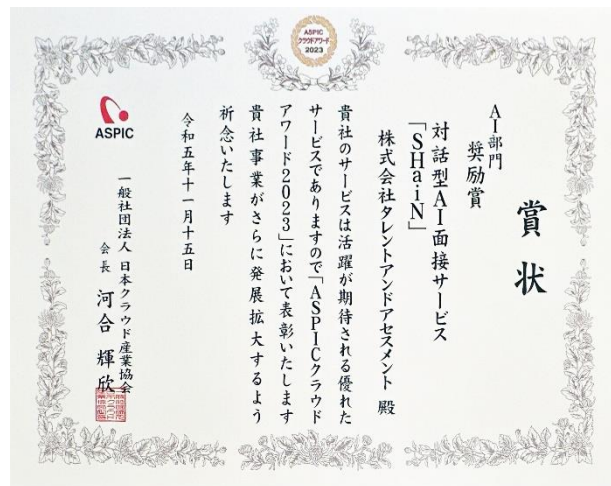 ASPIC
クラウドアワード
2023
賞状
AI部門
奨励賞
対話型AI面接サービス
「SHaiN」
株式会社タレントアンドアセスメント 殿
貴社のサービスは活躍が期待される優れた
サービスでありますので「ASPICクラウド
アワード2023」において表彰いたします
貴社事業がさらに発展拡大するよう
祈念いたします
令和五年十一月十五日
ASPIC
一般社団法人 日本クラウド産業協会
会長 河合 輝欣